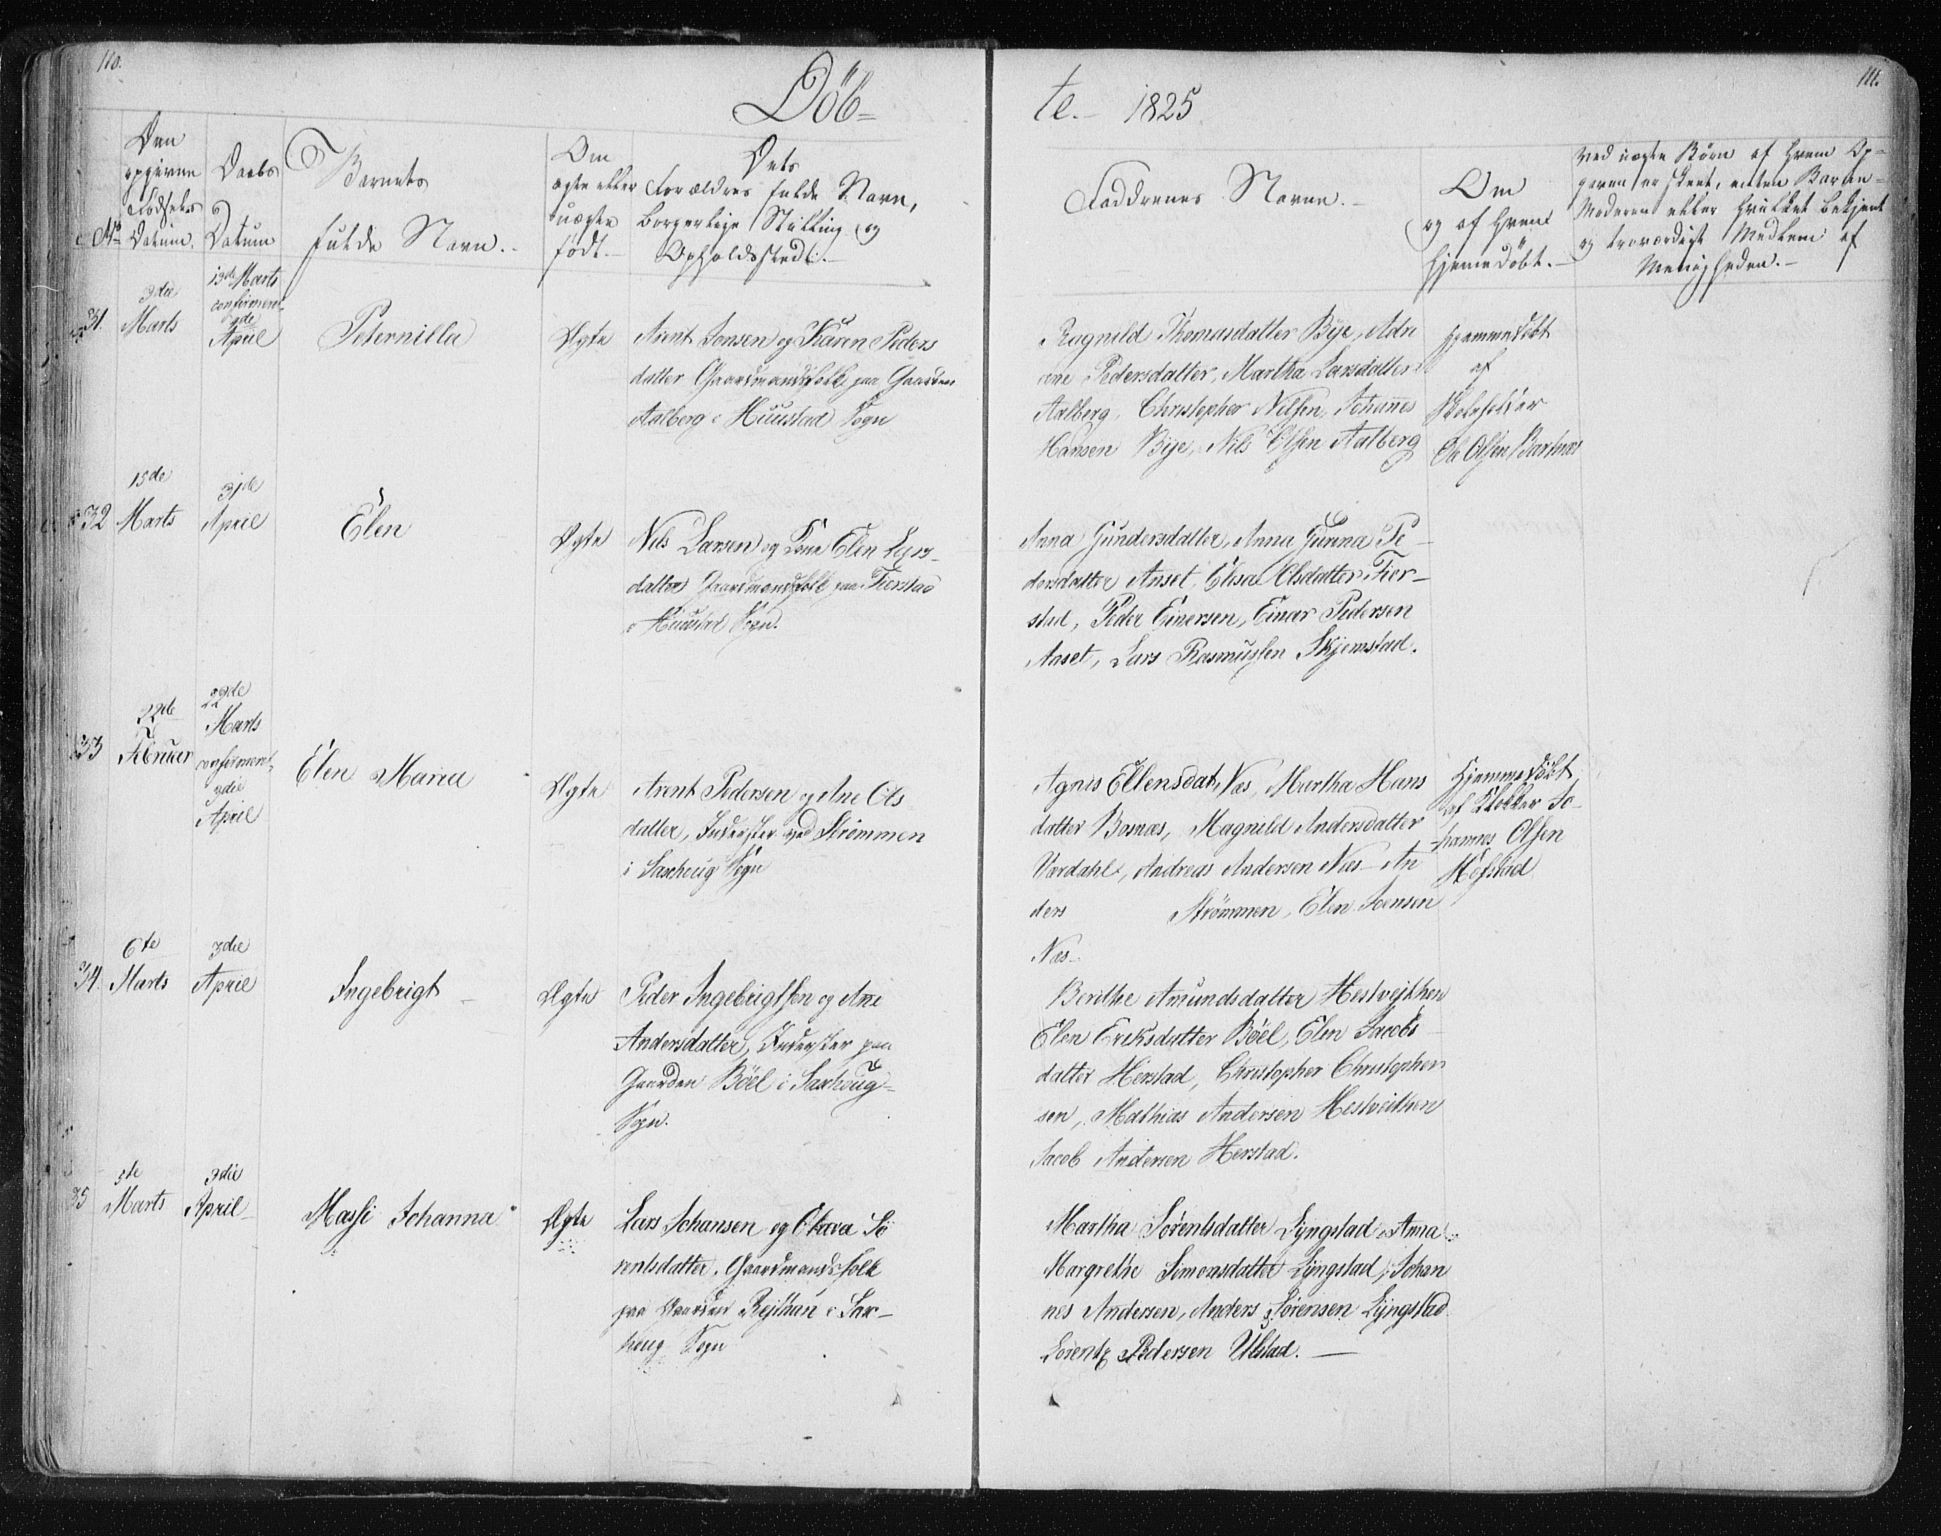 110.
111.
Döb=
te. - 1825
No
Den
opgivne
Fødsels
Datum.
Daabs
Datum
Barnets
fulde Navn.
Om
ægte eller
uægte
født.
Dets
Forældres fulde Navn,
borgerlige Stilling og
Opholdssted.
Faddrenes Navne.
Om
og af hvem
hjemedöbt.
Ved uægte Börn af hvem Op-
gaven er skeet, enten Barne-
Moderen eller hvilket bekjent
og troværdigt Medlem af
Menigheden.
31.
3die
Marts
13de Marts
confirmeret
April
Peternilla
Ægte
Arent Jonsen og Karen Peders
datter Gaardmandsfolk paa Gaarden
Aalberg i Huustad Sogn
Ragnild Thomasdatter Bye, Adri
ane Pedersdatter, Martha Larsdatter
Aalberg, Christopher Nilsen, Johanes
Hansen Bye, Nils Olsen Aalberg
Hjemmedöbt
af
Skoleholder
Ole Olsen Bartnæs
32
15de
Marts
31de
April
Elen
Ægte
Nils Larsen og Kone Elen Lars-
datter Gaardmandsfolk paa Fierstad
i Huustad Sogn.
Anna Gundersdatter, Anna Gunna Pe-
dersdatter Aaset, Elisa Olsdatter Fier-
stad, Peder Einersen, Einar Pedersen
Aaset, Lars Rasmussen Skjemstad.
33
22de
Februar
22de
Marts
confirmeret
3die
April
Elen Maria
Ægte
Arent Pedersen og Ane Ols
datter, Inderster ved Strömmen
i Saxhoug Sogn
Agnis Ellensdat. Næs, Martha Hans
datter Bosnæs, Magnild Andersdatter
Værdahl, Andreas Andersen Næs An
ders Strömmen, Elen Jensen
Næs.
Hjemmedöbt
af Klokker Jo-
hannes Olsen
Hofstad
34.
6te
Marts
3die
April
Ingebrigt
Ægte
Peder Ingebrigtsen og Ane
Andersdatter, Inderster paa
Gaarden Böel i Saxhoug-
Sogn.
Berithe Amundsdatter Hestvejkhen
Elen Eriksdatter Böel, Elen Jacobs
datter Herstad, Christopher Christopher
sen, Mathias Andersen Hestveikhen
Jacob Andersen Herstad.
35
5te
Marts
3die
April
Massi Johanna
Ægte
Lars Johansen og Olava Sö
rentsdatter. Gaardmandsfolk
paa Gaarden Rejthau i Sax-
houg Sogn
Martha Sörentsdatter Lyngstad, Anna
Margrethe Simonsdatter Lyngstad, Johan
nes Andersen, Anders Sörensen Lyngstad
Sörentz Pedersen Ulstad.